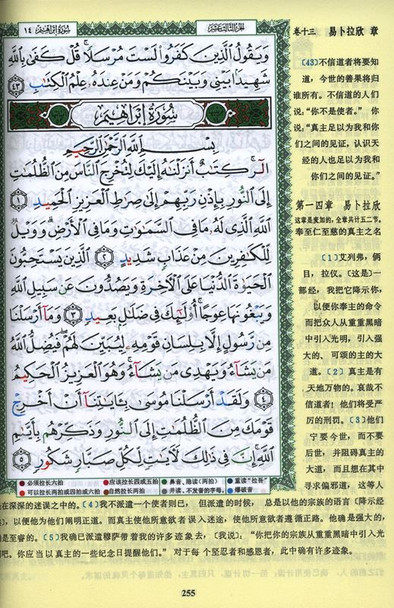 الجزء الثالث عشر
سورة ابراهيم ١٤
وَيَقُولُ الَّذِينَ كَفَرُوا لَسْتَ مُرْسَلًا قُلْ كَفَىٰ بِاللَّهِ
شَهِيدًا بَيْنِي وَبَيْنَكُمْ وَمَنْ عِندَهُ عِلْمُ الْكِتَابِ ٤٣
سُورَةُ إِبْرَاهِيمَ
بِسْمِ اللَّهِ الرَّحْمَٰنِ الرَّحِيمِ
الٓر كِتَابٌ أَنزَلْنَاهُ إِلَيْكَ لِتُخْرِجَ النَّاسَ مِنَ الظُّلُمَاتِ
إِلَى النُّورِ بِإِذْنِ رَبِّهِمْ إِلَىٰ صِرَاطِ الْعَزِيزِ الْحَمِيدِ ١
اللَّهِ الَّذِي لَهُ مَا فِي السَّمَاوَاتِ وَمَا فِي الْأَرْضِ وَوَيْلٌ
لِّلْكَافِرِينَ مِنْ عَذَابٍ شَدِيدٍ ٢ الَّذِينَ يَسْتَحِبُّونَ
الْحَيَاةَ الدُّنْيَا عَلَى الْآخِرَةِ وَيَصُدُّونَ عَن سَبِيلِ اللَّهِ
وَيَبْغُونَهَا عِوَجًا أُولَٰئِكَ فِي ضَلَالٍ بَعِيدٍ ٣ وَمَا أَرْسَلْنَا
مِن رَّسُولٍ إِلَّا بِلِسَانِ قَوْمِهِ لِيُبَيِّنَ لَهُمْ فَيُضِلُّ اللَّهُ
مَن يَشَاءُ وَيَهْدِي مَن يَشَاءُ وَهُوَ الْعَزِيزُ الْحَكِيمُ
٤ وَلَقَدْ أَرْسَلْنَا مُوسَىٰ بِآيَاتِنَا أَنْ أَخْرِجْ
قَوْمَكَ مِنَ الظُّلُمَاتِ إِلَى النُّورِ وَذَكِّرْهُم بِأَيَّامِ
اللَّهِ إِنَّ فِي ذَٰلِكَ لَآيَاتٍ لِّكُلِّ صَبَّارٍ شَكُورٍ ٥
必须拉长六拍 应该拉长四或五拍 鼻音、隐读(两拍) 重读"拉长"
可以拉长两拍或四拍或六拍 自然拉长两拍 并读、不发音的字母。 爆破音
卷十三 易卜拉欣 章
(43)不信道者将要知
道，今世的善果将归
谁所有。不信道的人们
说："你不是使者。" 你
说："真主足以为我和你
们之间的见证，认识天
经的人也足以为我和
你们之间的见证。"
第一四章 易卜拉欣
这章是麦加的，全章共计五二节。
奉至仁至慈的真主之名
(1)艾列弗，俩
目，拉仪。(这是)一
部经，我把它降示你，
以便你奉主的命令
而把众人从重重黑暗
中引入光明，引入强
大的、可颂的主的大
道。(2)真主是有
天地万物的。哀哉不
信道者！他们将受严
厉的刑罚。(3)他们
宁要今世，而不要
后世；并阻碍真主的
大道，而且想在其中
寻求偏邪道，这等人
在深深的迷误之中的。(4)我不派遣一个使者则已，但派遣的时候，总是以他的宗族的语言(降示经
)，以便他为他们阐明正道。而真主使他所意欲者误入迷途，使他所意欲者遵循正路。他确是强大的，
是至睿的。(5)我确已派遣穆萨带着我的许多迹象去，(我说)，"你把你的宗族从重重黑暗中引入光
吧。你应当以真主的一些纪念日提醒他们。" 对于每个坚忍者和感恩者，此中确有许多迹象。
255